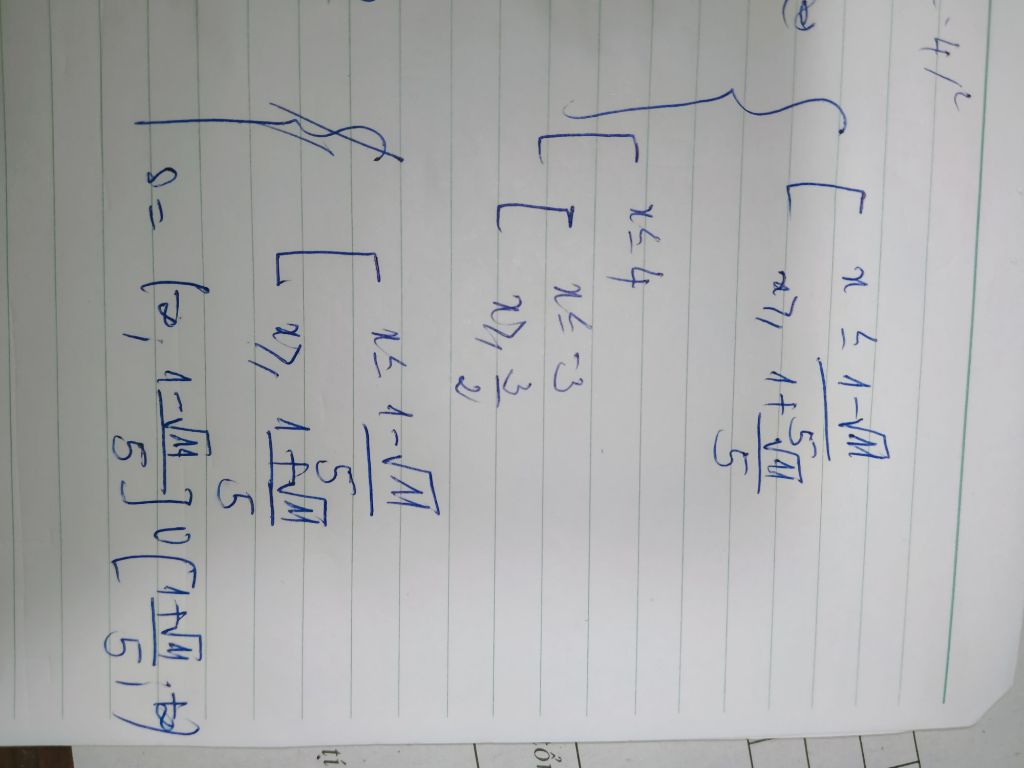 x ≤ \frac{1-√11}{5}
x ≥ \frac{1+√11}{5}
x ≤ 4
x ≤ -3
x ≥ \frac{3}{2}
x ≤ \frac{1-√11}{5}
x ≥ \frac{1+√11}{5}
S = (∞; \frac{1-√11}{5}] ∪ [\frac{1+√11}{5}; +∞)